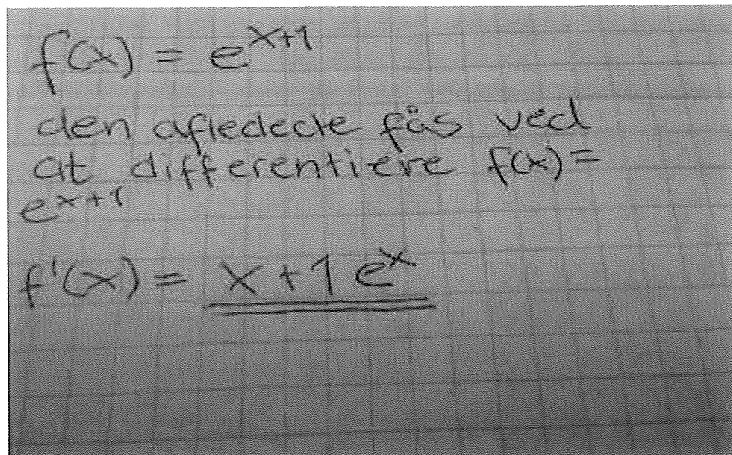 f(x) = e^x+1
den afledede fås ved
at differentiere f(x) =
e^x+1
f'(x) = x + 1 e^x